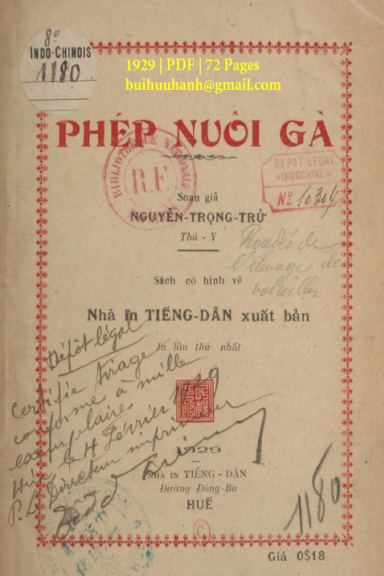 8º
INDO-CHINOIS
1180
1929 | PDF | 72 Pages
buihuuhanh@gmail.com
PHÉP NUÔI GÀ
BIBLIOTHÈQUE NATIONALE
R.F.
DÉPOT LÉGAL
«INDOCHINE»
Nº 10304
Soạn giả
NGUYỄN-TRỌNG-TRỪ
Thú-Y
de
l'élevage de
volailles
Sách có hình vẽ
Nhà in TIẾNG-DÂN xuất bản
In lần thứ nhất
Dépôt légal
Certifié tirage
conforme à mille
exemplaires
le 4 Février 1929
P. Le Directeur
1929
NHÀ IN TIẾNG-DÂN
Đường Đông-Ba
HUẾ
1180
Giá 0$18